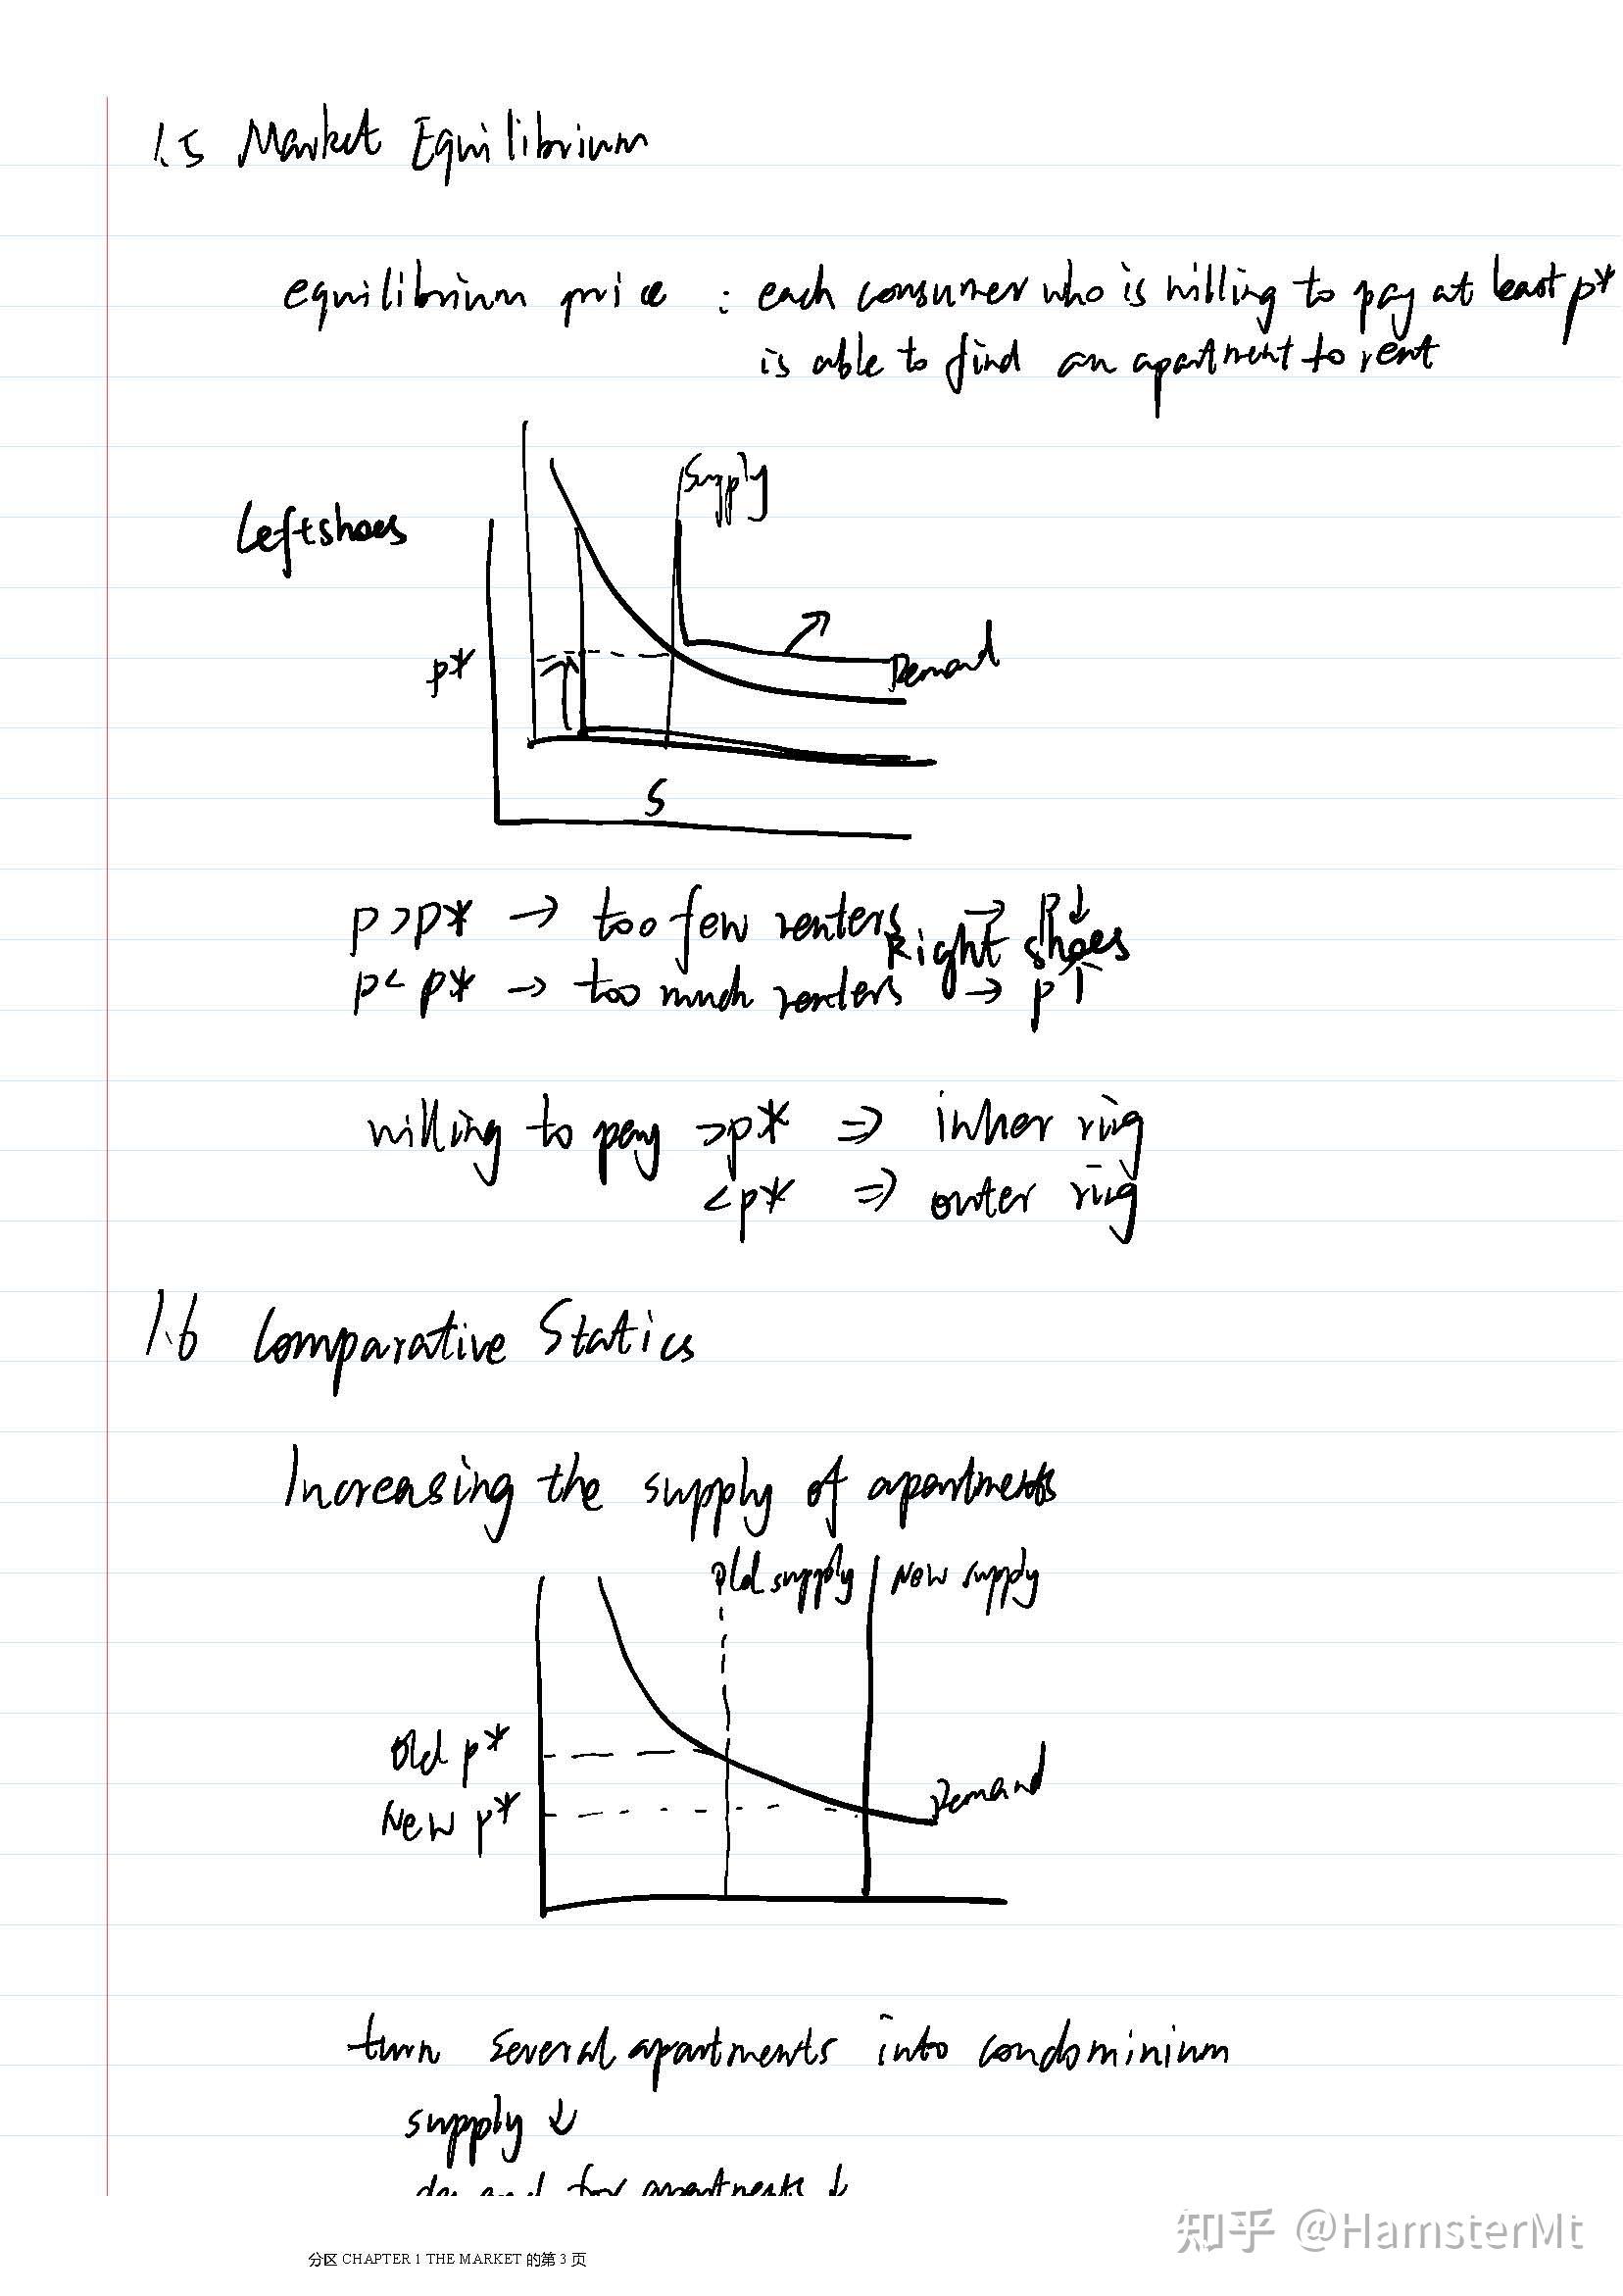 1.5 Market Equilibrium
equilibrium price : each consumer who is willing to pay at least p*
is able to find an apartment to rent
Supply
Left shoes
p*
Demand
S
p>p* → too few renters → p↓
Right shoes
p<p* → too much renters → p↑
willing to pay >p* ⇒ inner ring
<p* ⇒ outer ring
1.6 Comparative Statics
Increasing the supply of apartments
Old supply New supply
Old p*
Demand
New p*
turn several apartments into condominium
supply ↓
demand for apartments ↓
知乎 @HamsterMt
分区 CHAPTER 1 THE MARKET 的第 3 页